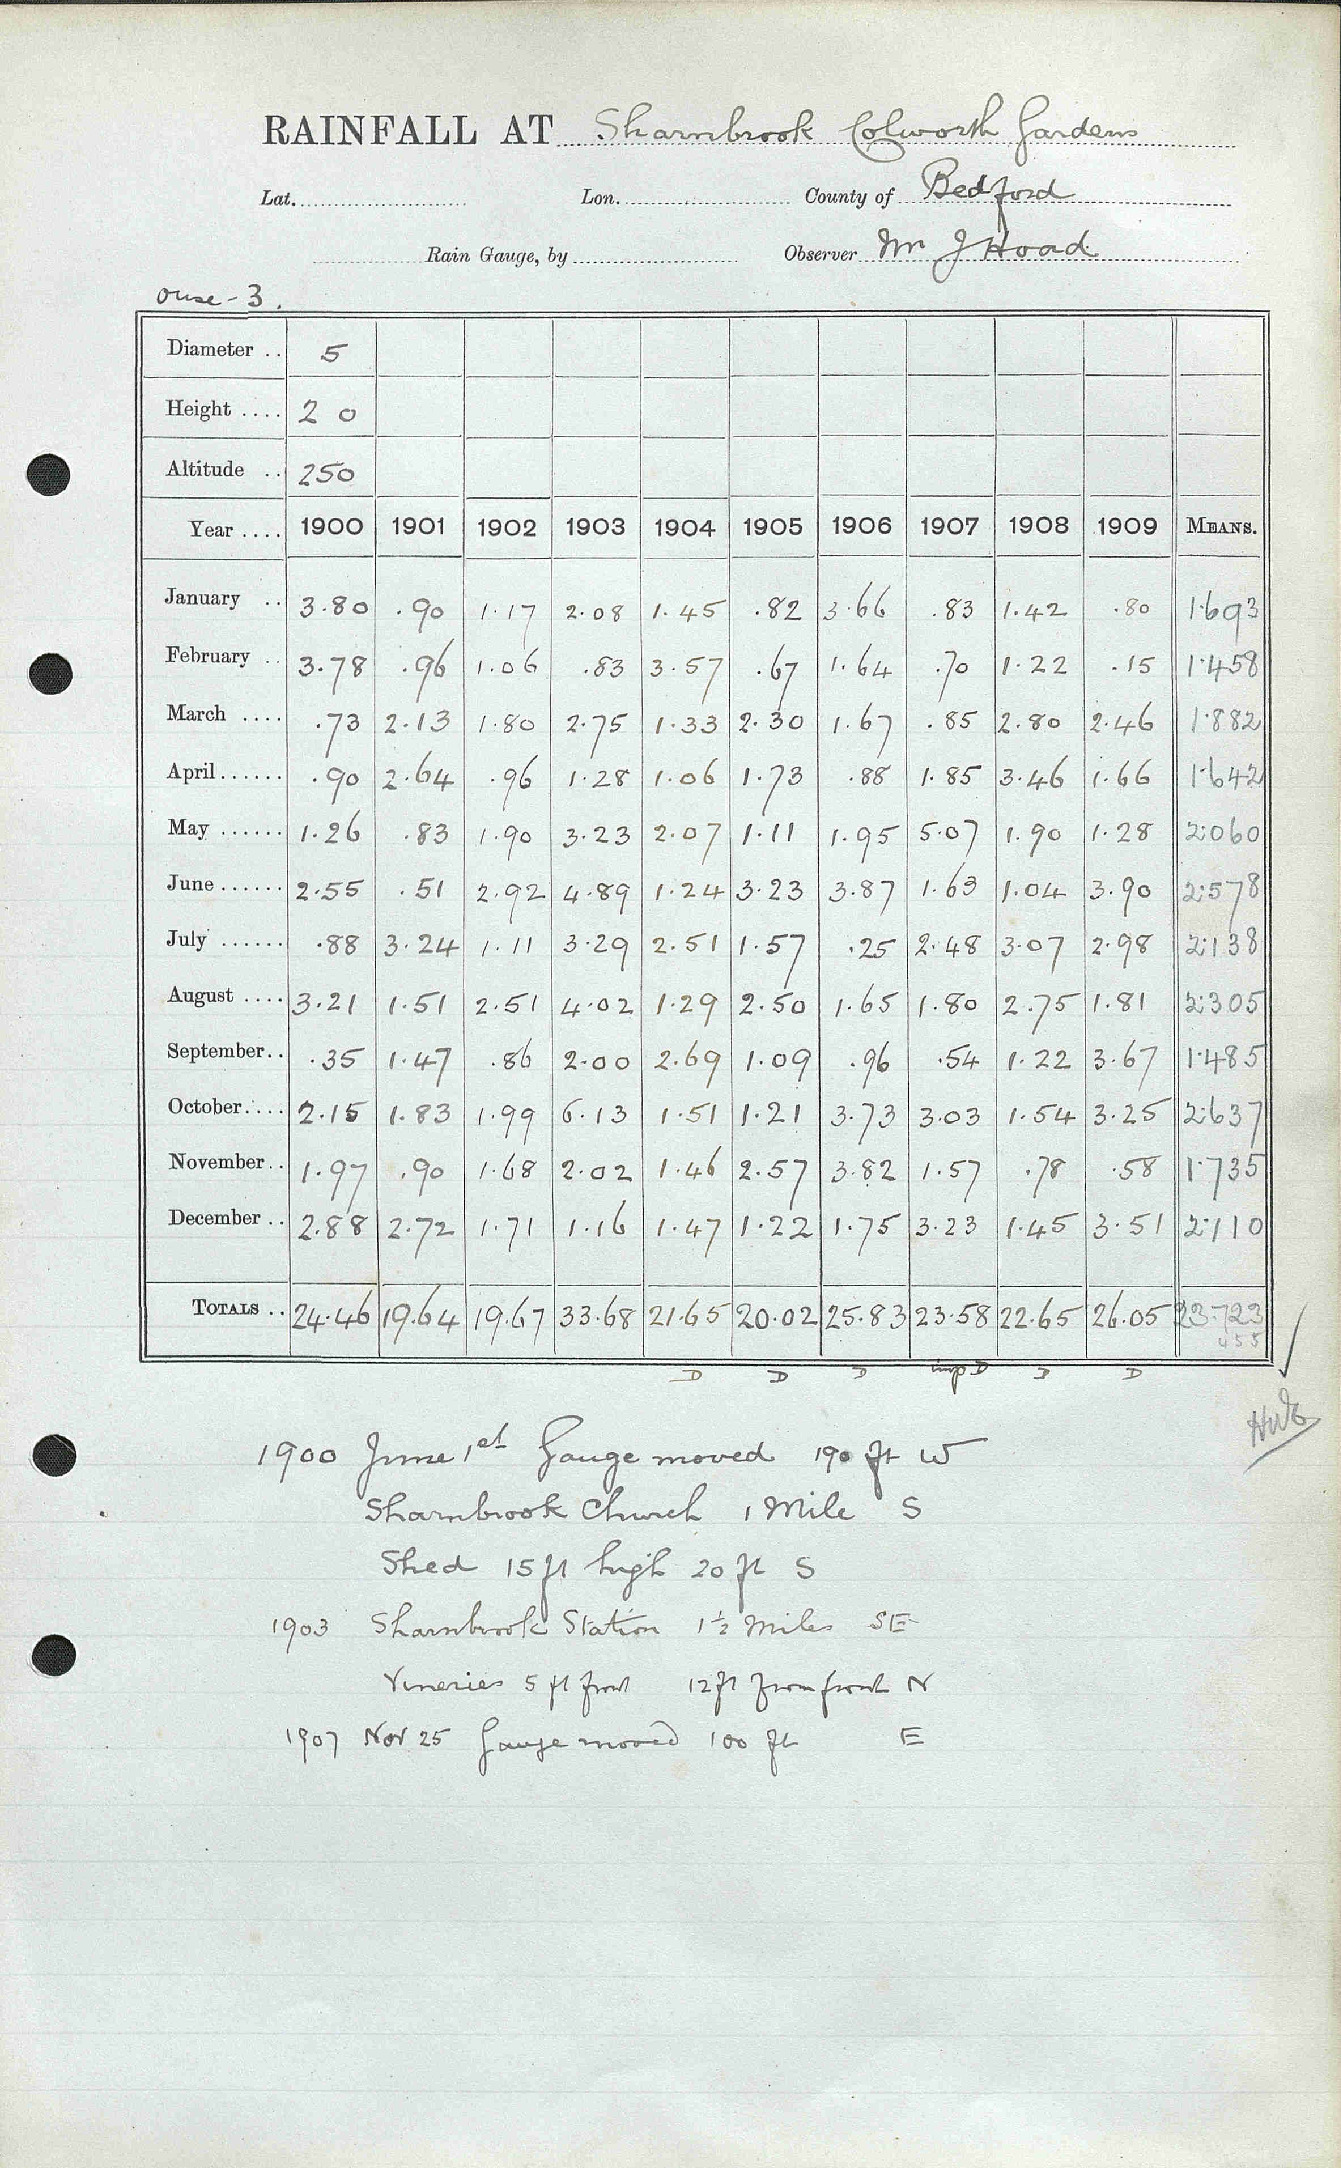 RAINFALL AT Sharnbrook Colworth Gardens
Lat. Lon. County of Bedford
Rain Gauge, by Observer Mr J Hoad
Ouse - 3.
Diameter .. 5
Height .... 2 0
Altitude .. 250
Year .... 1900 1901 1902 1903 1904 1905 1906 1907 1908 1909 MEANS.
January .. 3.80 .90 1.17 2.08 1.45 .82 3.66 .83 1.42 .80 1.693
February .. 3.78 .96 1.06 .83 3.57 .67 1.64 .70 1.22 .15 1.458
March .... .73 2.13 1.80 2.75 1.33 2.30 1.67 .85 2.80 2.46 1.882
April ...... .90 2.64 .96 1.28 1.06 1.73 .88 1.85 3.46 1.66 1.642
May ...... 1.26 .83 1.90 3.23 2.07 1.11 1.95 5.07 1.90 1.28 2.060
June ...... 2.55 .51 2.92 4.89 1.24 3.23 3.87 1.63 1.04 3.90 2.578
July ...... .88 3.24 1.11 3.29 2.51 1.57 .25 2.48 3.07 2.98 2.138
August .... 3.21 1.51 2.51 4.02 1.29 2.50 1.65 1.80 2.75 1.81 2.305
September .. .35 1.47 .86 2.00 2.69 1.09 .96 .54 1.22 3.67 1.485
October .... 2.15 1.83 1.99 6.13 1.51 1.21 3.73 3.03 1.54 3.25 2.637
November .. 1.97 .90 1.68 2.02 1.46 2.57 3.82 1.57 .78 .58 1.735
December .. 2.88 2.72 1.71 1.16 1.47 1.22 1.75 3.23 1.45 3.51 2.110
TOTALS .. 24.46 19.64 19.67 33.68 21.65 20.02 25.83 23.58 22.65 26.05 23.723
455
D D D imp D D D
1900 June 1st Gauge moved 190 ft W
Sharnbrook Church 1 Mile S
Shed 15 ft high 20 ft S
1903 Sharnbrook Station 1½ Miles SE
Vineries 5 ft front 12 ft from front N
1907 Nov 25 Gauge moved 100 ft E